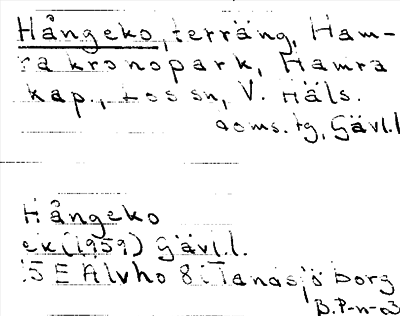 Hångeko, terräng, Ham-
ra kronopark, Hamra
kap., Los sn, V. Häls.
doms. tg, Gävl.l
Hångeko
ek(1959) Gävl.l.
15E Älvho 8i Tanasjöborg